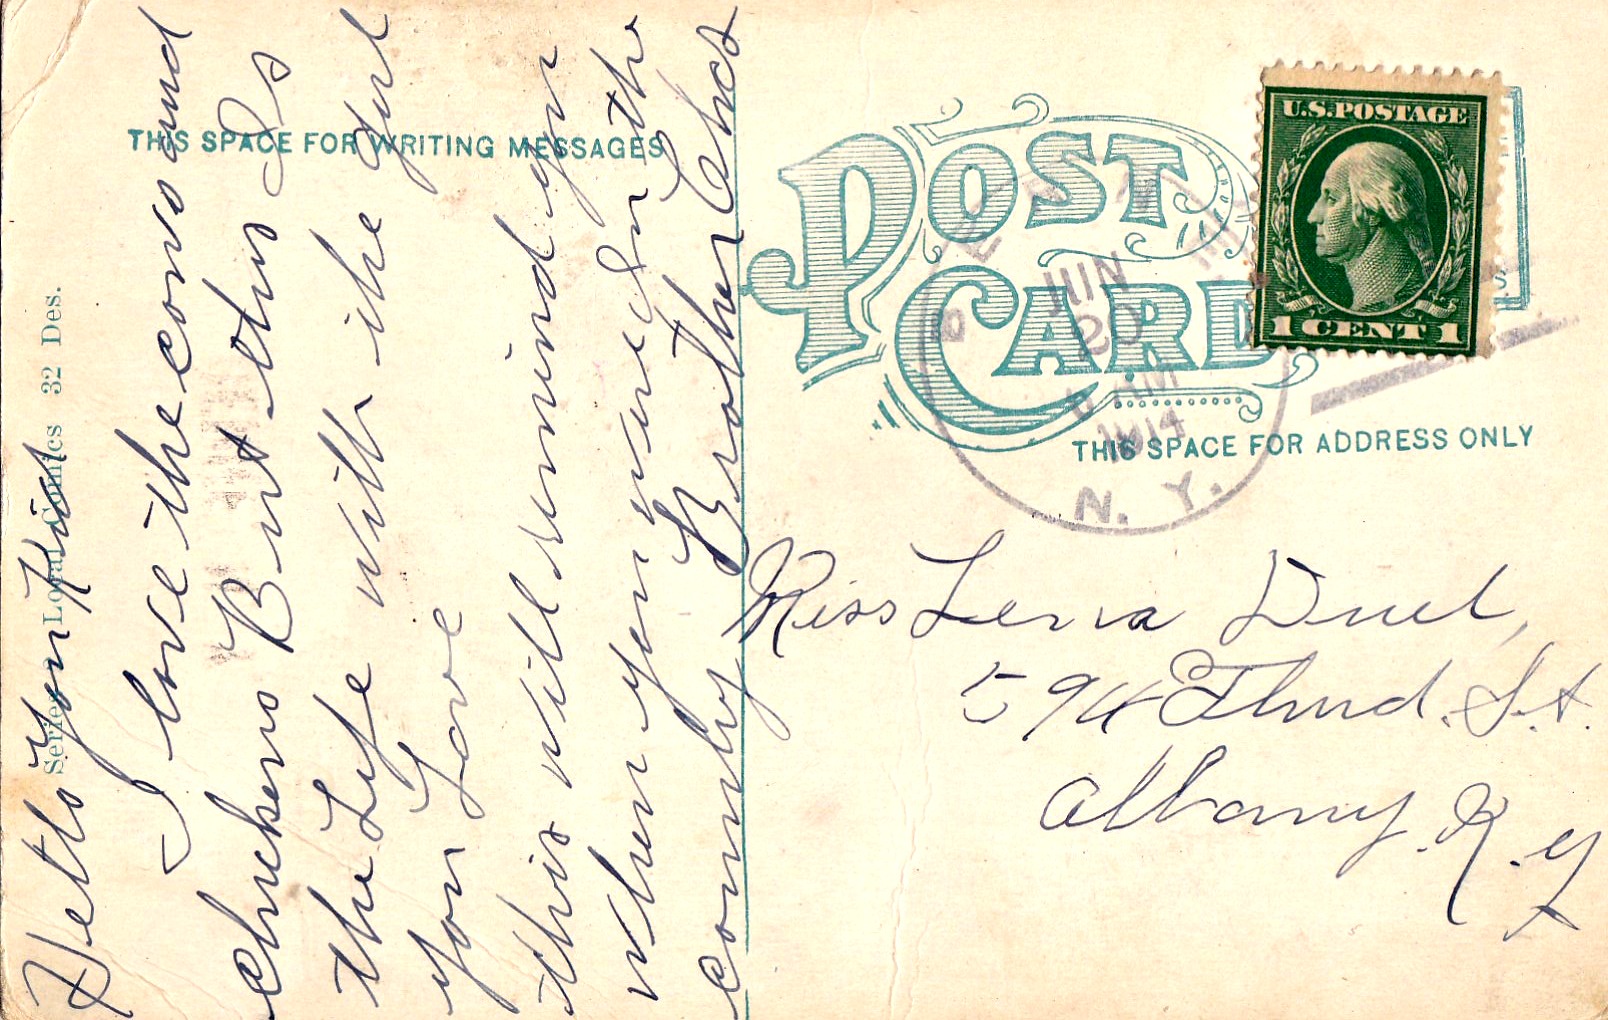 THIS SPACE FOR WRITING MESSAGES
Series Local Comics 32 Des.
Hello you Kid
I love the cows and
chickens But this Is
the Life with the girl
you Love
this will remind you
when you were In the
country Brother Chas
POST
CARD
U.S. POSTAGE
1 CENT 1
JUN
20
AM
1914
N. Y.
THIS SPACE FOR ADDRESS ONLY
Miss Lena Duel,
594 Third. St.
Albany. N. Y